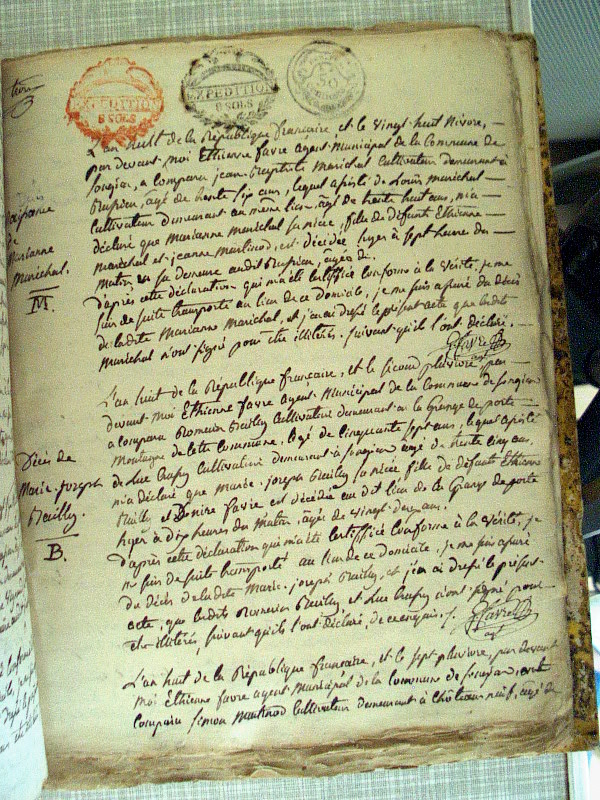 EXPEDITION
8 SOLS
EXPEDITION
8 SOLS
L'an huit de la République françaire, et le vingt huit Nivore,
par devant moi Ethienne favre agent Municipal de la Commune de
Songieu, a comparu jean-Baptiste Maréchal Cultivateur demeurant à
agé de trente six ans, lequel assisté de Louis maréchal
Cultivateur demeurant au même lieu agé de trente huit ans, m'a
déclaré que Marianne maréchal sa nièce, fille de défunts Ethienne
Maréchal et jeanne Martinod, est décédée hyer à sept heure du
Matin, en sa demeure audit agée de.
D'après cette déclaration qui m'a été certiffiée conforme à la vérité, je me
suis de suite transporté au lieu de ce Domicile, je me suis assuré du décès
de ladite Marianne Maréchal, et j'en ai dressé le présent acte que lesdit
Maréchal n'ont signé pour être illitérés, suivant qu'ils l'ont déclaré.
Marianne
Maréchal.
M.
L'an huit de la République françaire, et le second pluviore, par
devant moi Ethienne favre agent Municipal de la Commune de Songieu
a comparu Romain Cultivateur demeurant à la Grange de porte
Montagne de cette Commune, agé de cinquante sept ans, lequel assisté
de Luc Cultivateur demeurant à Songieu agé de trente cinq ans,
m'a déclaré que marie-joseph sa nièce fille de défunts Ethienne
et Denise favre est décédée au dit lieu de la Grange de porte
hyer à dix heures du Matin, agée de vingt deux ans.
D'après cette déclaration qui m'a été certiffiée conforme à la vérité, je
me suis de suite transporté au lieu de ce Domicile, je me suis assuré
du décès de ladite Marie-joseph et j'en ai dressé le présent
acte, que lesdits Romain et Luc n'ont signé pour
être illitérés, suivant qu'ils l'ont déclaré, de ce enquis.
Décès de
Marie-Joseph
B.
L'an huit de la République françaire, et le sept pluviore, par devant
moi Ethienne favre agent Municipal de la Commune de Songieu, est
comparu Simon Martinod Cultivateur demeurant à Château neuf, agé de